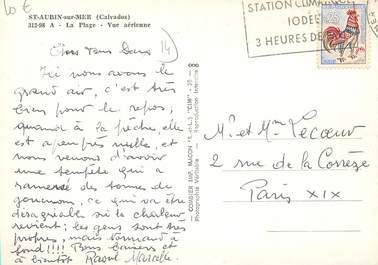 10 €
ST-AUBIN-sur-MER (Calvados)
312-98 A - La Plage - Vue aérienne
14
Chers tous deux
Ici nous avons le
grand air, c'est très
bien pour le repos;
quand à la pêche, elle
est à peu près nulle, et
nous venons d'avoir
une tempête qui a
ramené des tonnes de
goumon, ce qui va être
désagréable si la chaleur
revient; les gens sont très
propres, mais normand à
fond!!!! Bons baisers et
à bientôt Raoul Marcelle
COMBIER IMP. MACON (S.-et-L.) "CIM"
Photographie Véritable - Reproduction Interdite
STATION CLIMATIQUE
IODEE
3 HEURES DE
M. et Mme Lecoeur
2 rue de la Corrèze
Paris XIX